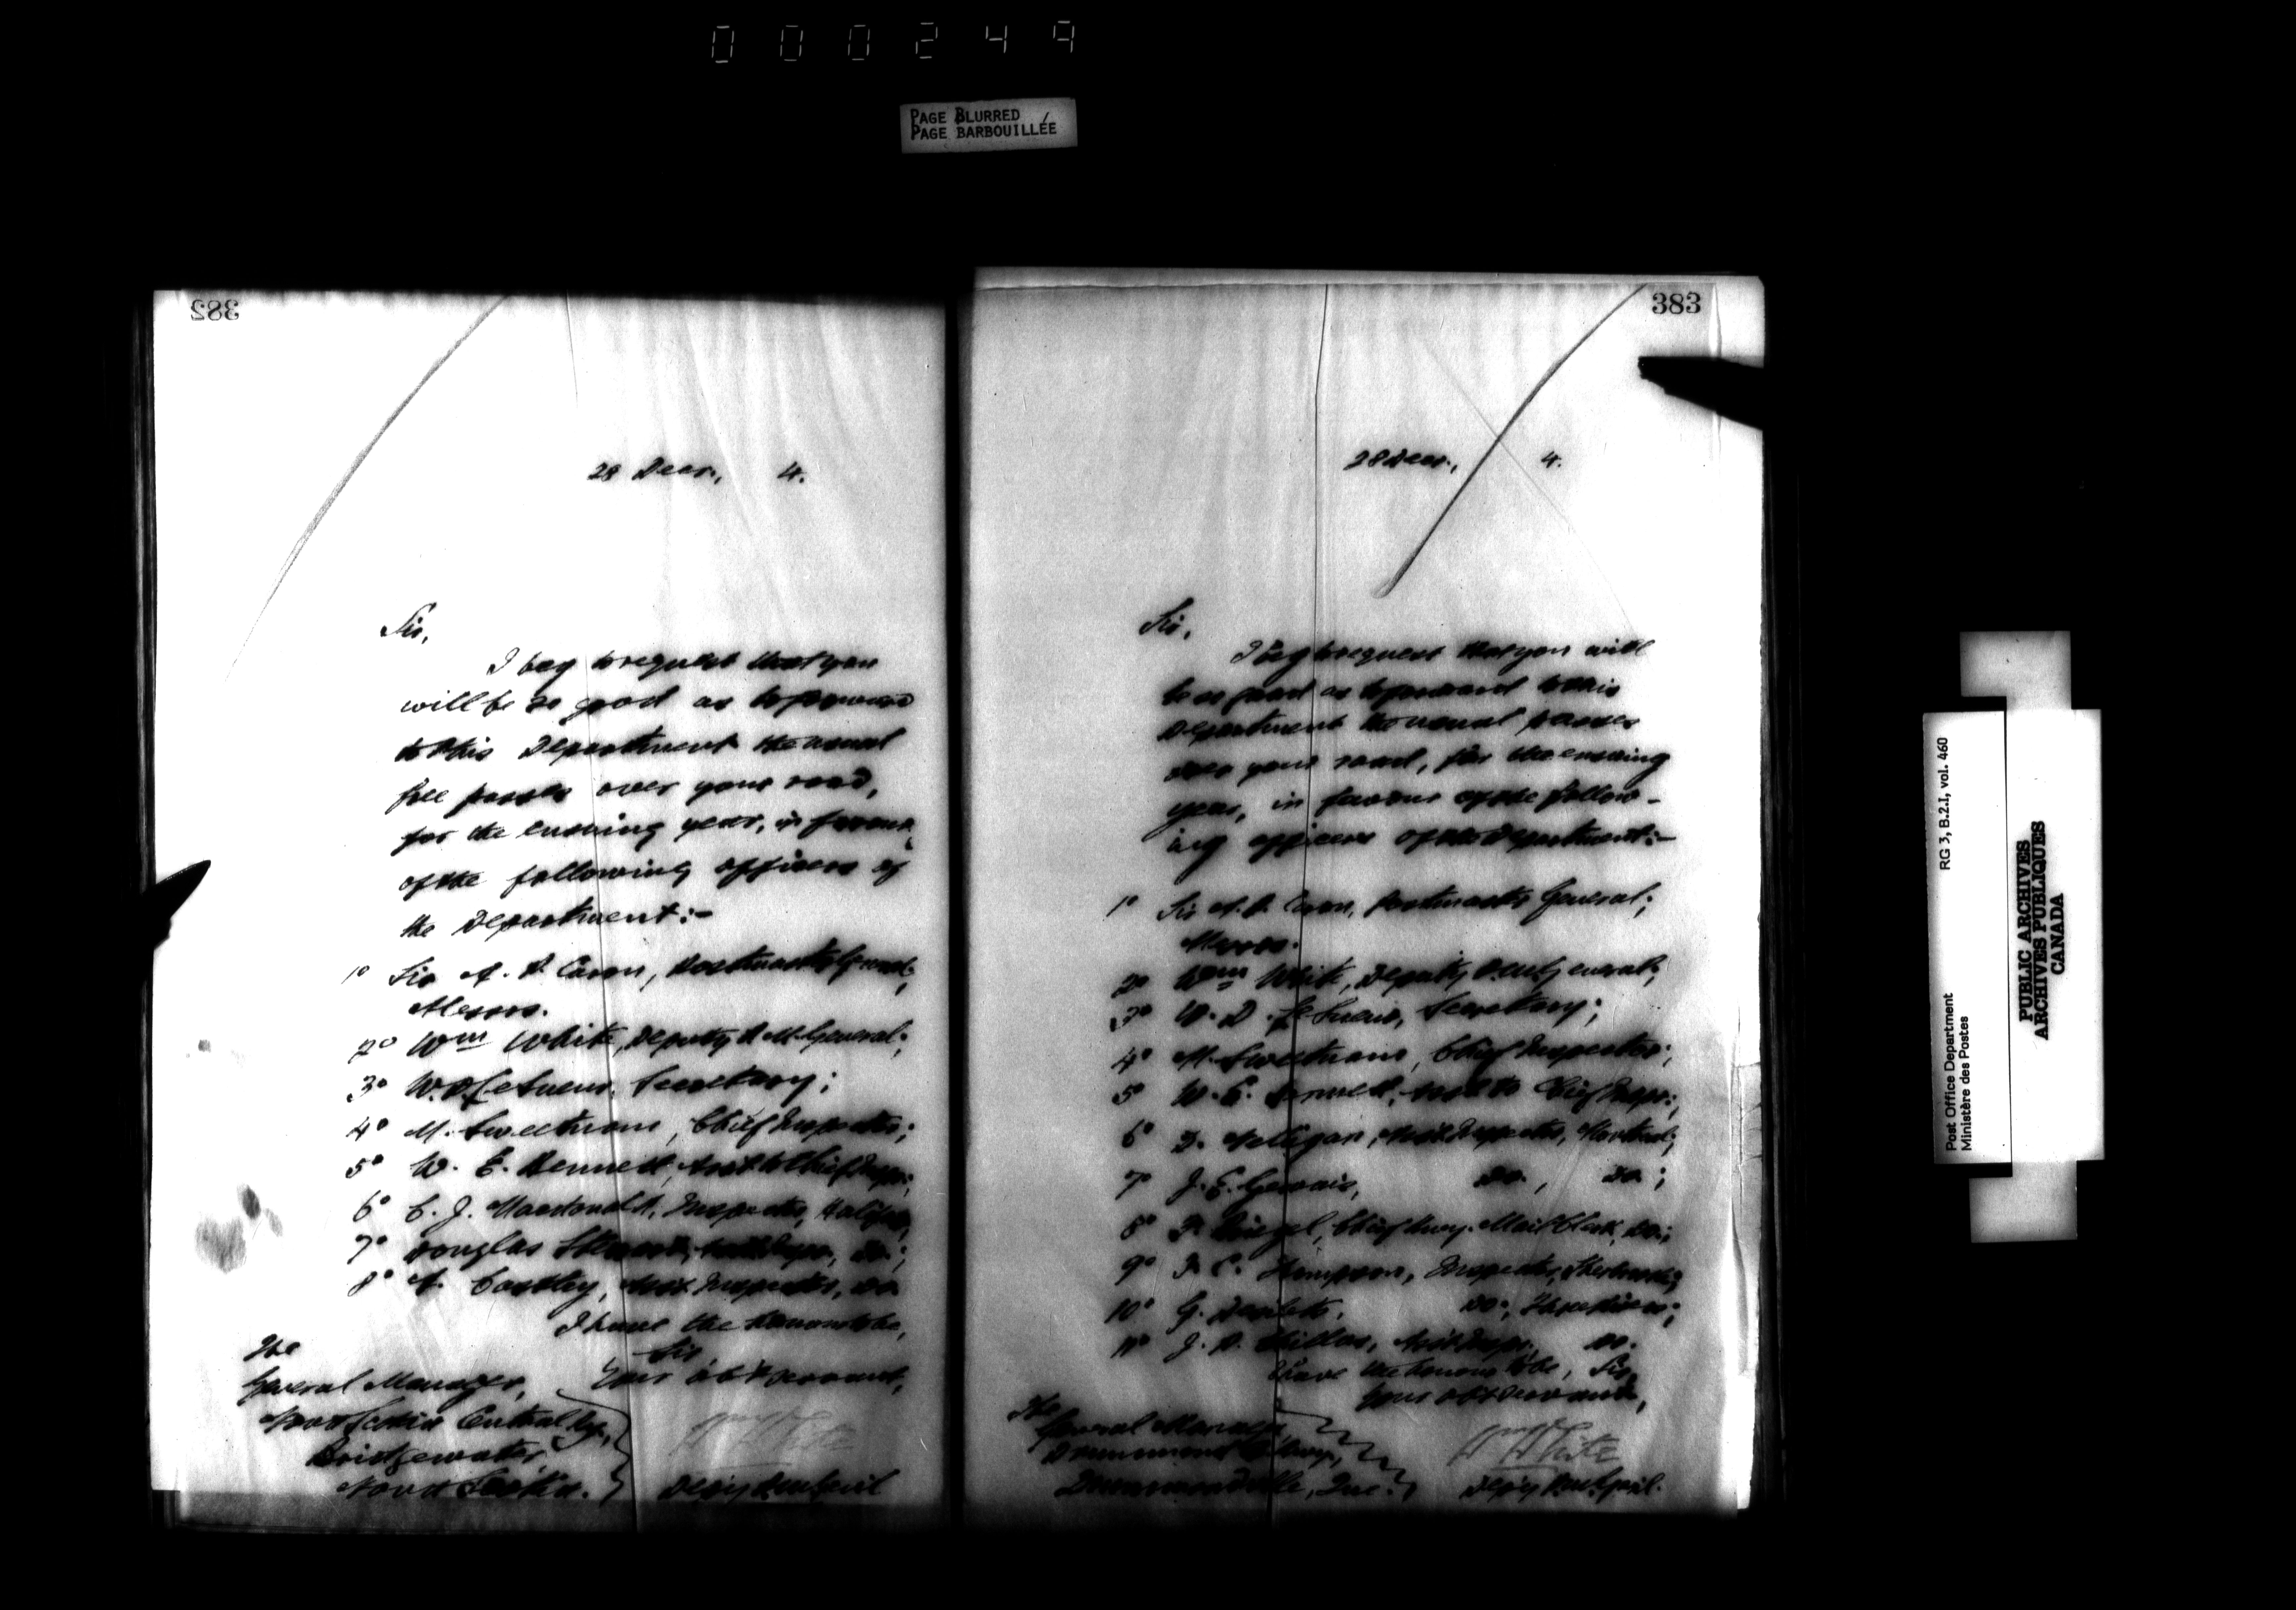 000249
PAGE BLURRED
PAGE BARBOUILLÉE
382
28 Decr., 4.
Sir,
I beg to request that you
will be so good as to forward
to this Department the usual
free passes over your road,
for the ensuing year, in favour
of the following officers of
the Department:-
1º Sir A. P. Caron, Postmaster General;
Messrs.
2º Wm White, Deputy P. M. General;
3º W. D. LeSueur, Secretary;
4º M. Sweetnam, Chief Inspector;
5º W. E. Bennett, Asst to Chief Inspr.;
6º C. J. Macdonald, Inspector, Halifax;
7º Douglas Stewart, Asst Inspr., do.;
8º A. Costley, Asst. Inspector, do
I have the honour to be,
Sir
Your obt servant,
The
General Manager,
Nova Scotia Central Ry.,
Bridgewater,
Nova Scotia.
Wm White
Depy P.M. Genl
383
28 Decr., 4.
Sir,
I beg to request that you will
be so good as to forward to this
Department the usual passes
over your road, for the ensuing
year, in favour of the follow-
ing officers of the Department:-
1º Sir A. P. Caron, Postmaster General;
Messrs.
2º Wm White, Deputy P.M. General;
3º W. D. LeSueur, Secretary;
4º M. Sweetnam, Chief Inspector;
5º W. E. Bennett, Asst to Chief Inspr.;
6º D. Nelligan, Asst Inspector, Montreal;
7º J. E. Gervais, do., do.;
8º Chief Rwy. Mail Clerk, do.;
9º Thompson, Inspector, Sherbrooke;
10º G. do., Three Rivers;
11º J. Asst Inspr., do.
I have the honour to be, Sir,
Your obt servant,
The
General Manager
Drummond Co. Rwy,
Drummondville, Que.
Wm White
Depy P.M. Genl.
Post Office Department
Ministère des Postes
RG 3, B.2.I, vol. 460
PUBLIC ARCHIVES
ARCHIVES PUBLIQUES
CANADA